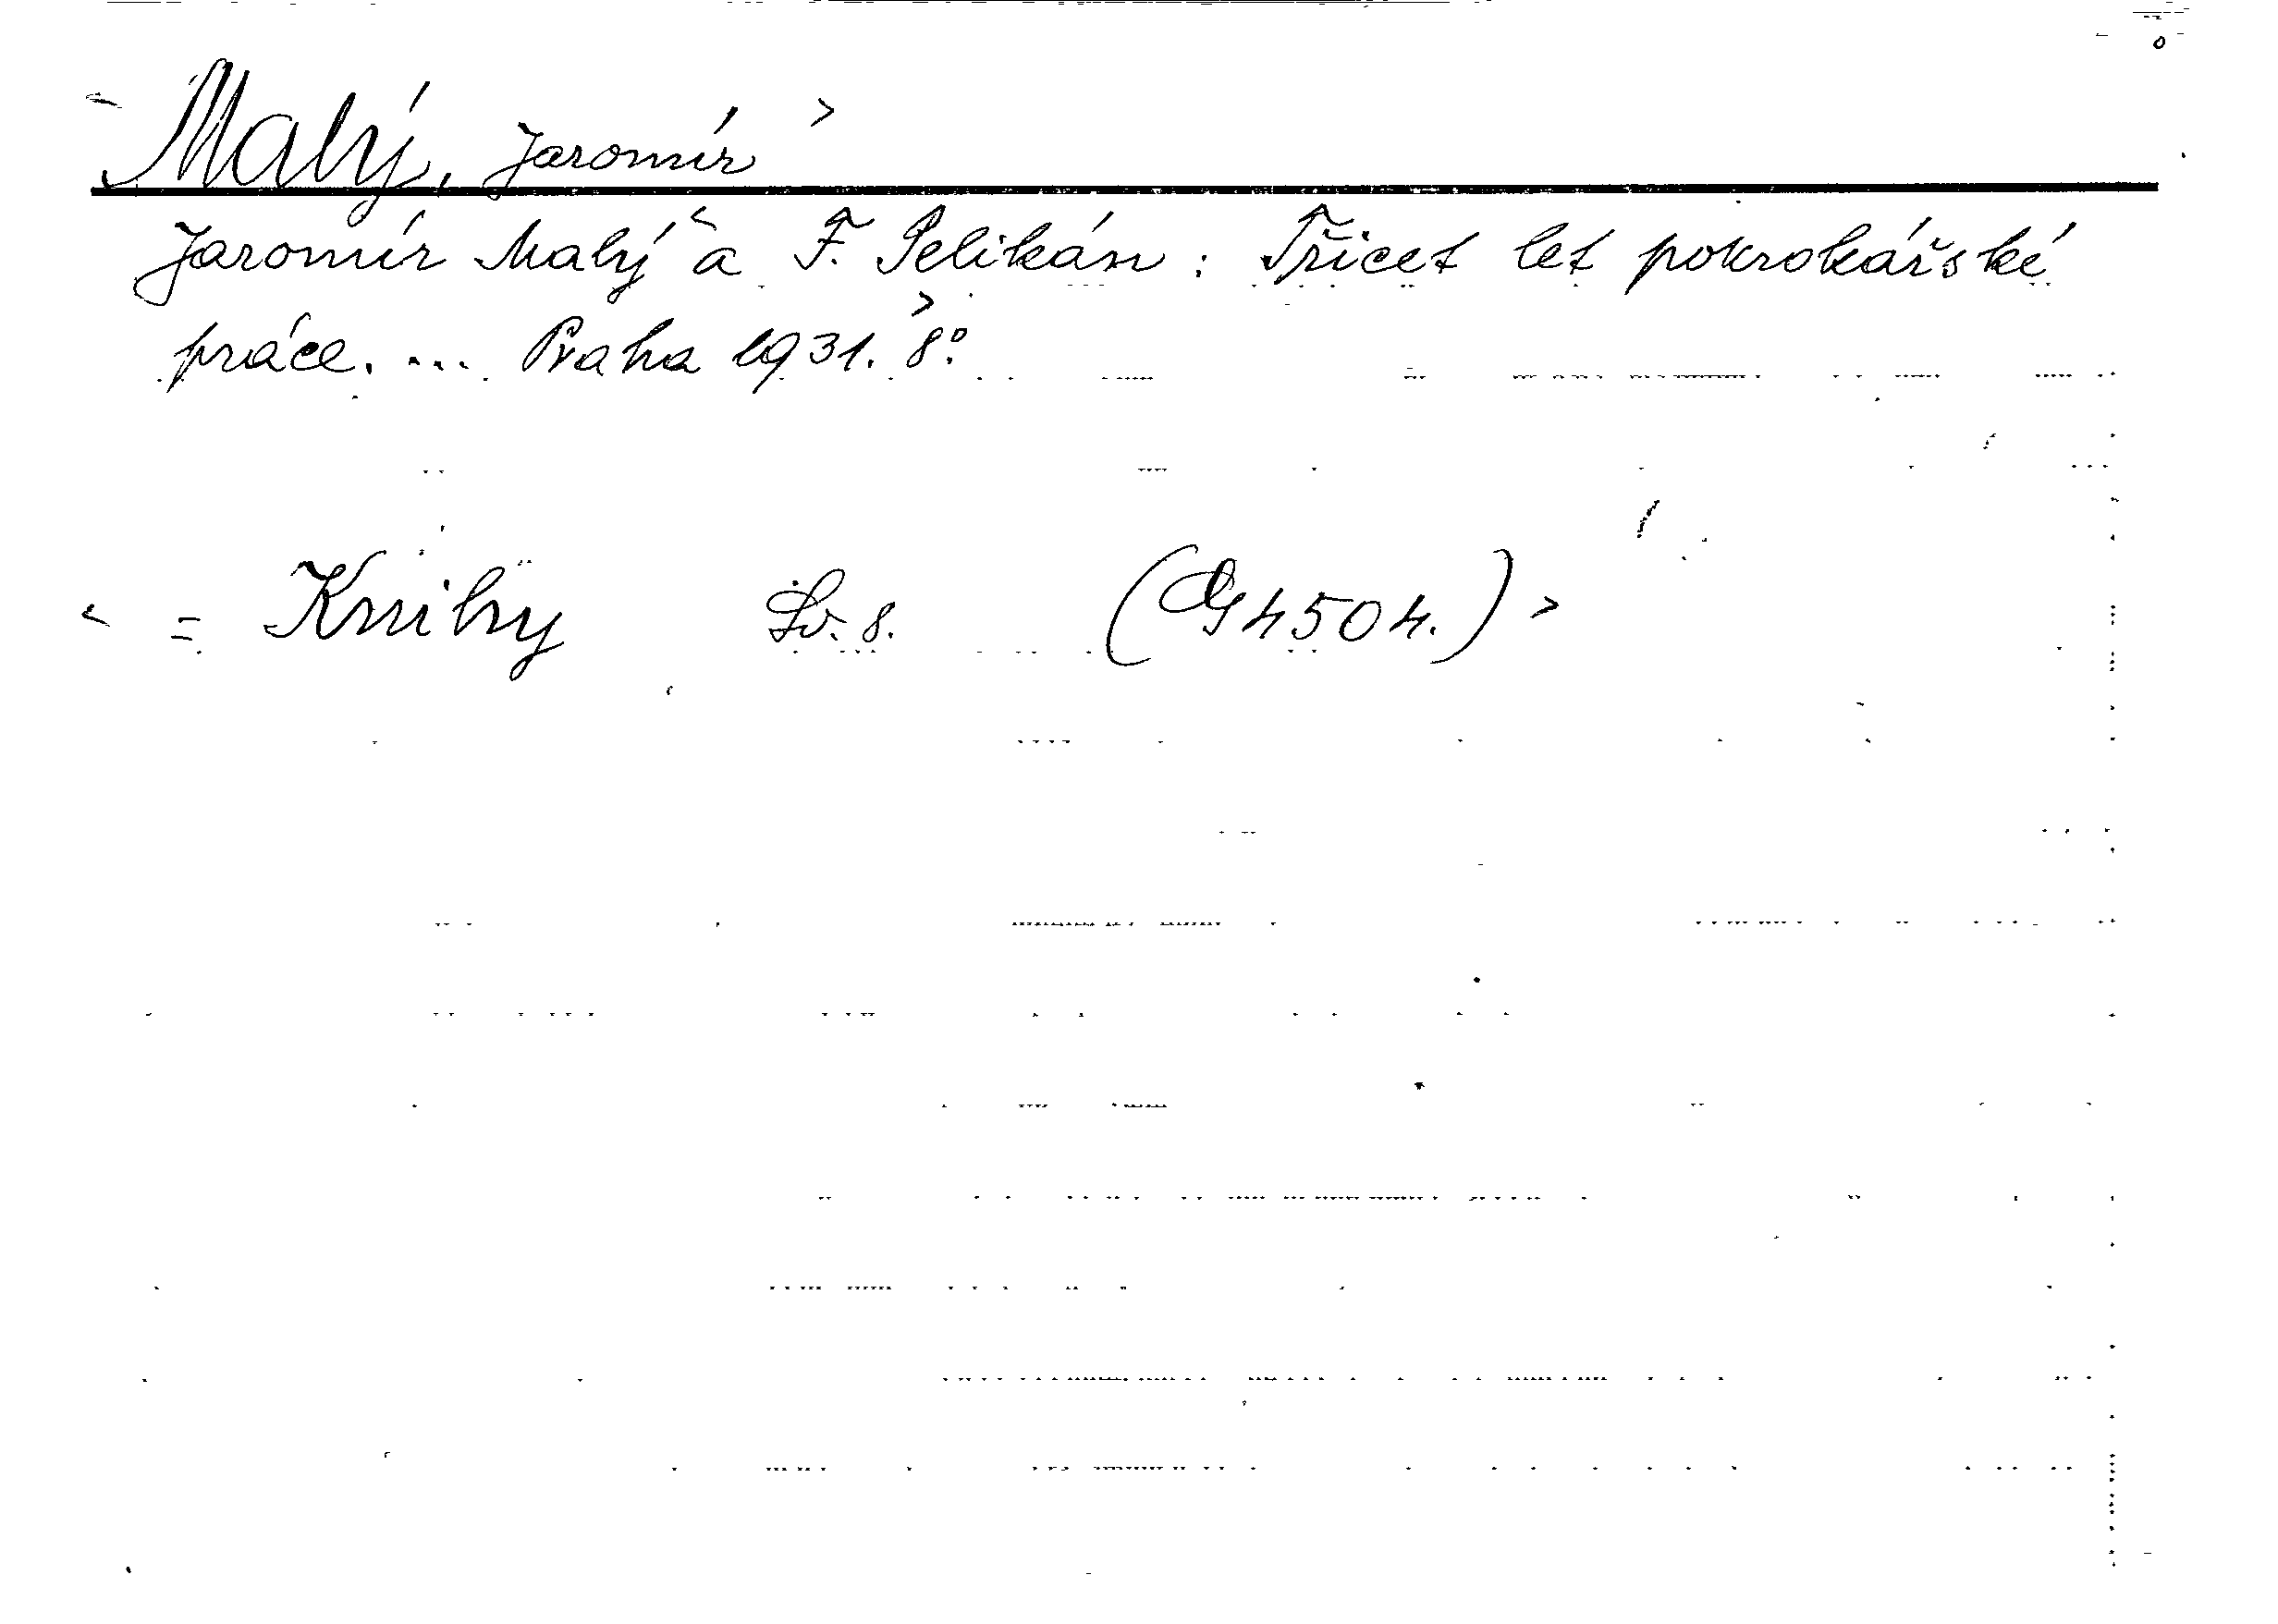 Malý, Jaromír >
Jaromír Malý < a F. Pelikán: Třicet let pokrokářské
práce. ... Praha 1931. 8°. >
< = Knihy Sv. 8. (G 4504.) >